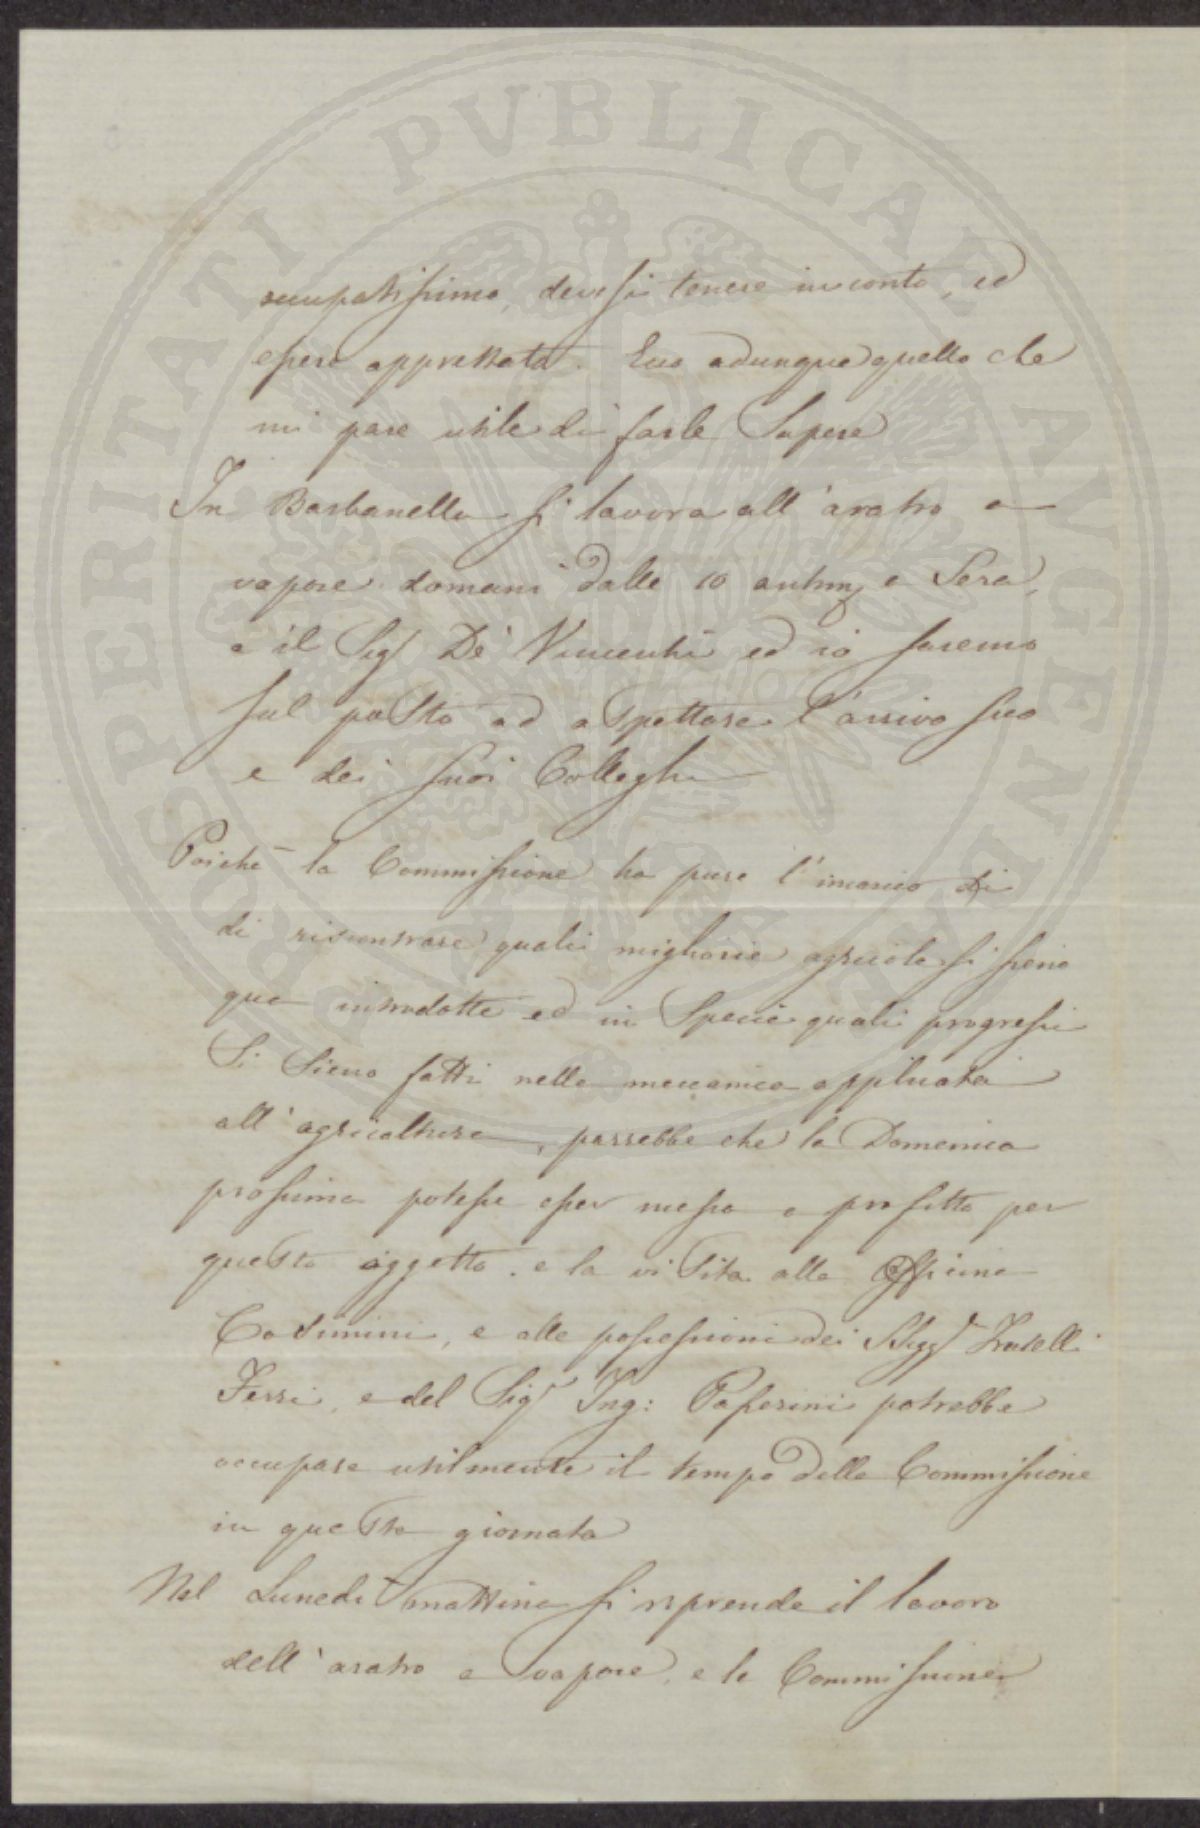 occupatissimo, devesi tenere in conto, ed
essere apprezzata. Ecco adunque quello che
mi pare utile di farle Sapere
In Barbanella si lavora all'aratro a
vapore domani dalle 10 antim. a Sera,
e il Sigr De' Vincenti ed io saremo
sul posto ad aspettare l'arrivo suo
e dei suoi Colleghi
Poichè la Commissione ha pure l'incarico di
di riscontrare quali migliorie agricole si sieno
qua introdotte ed in Specie quali progressi
Si Sieno fatti nella meccanica applicata
all'agricoltura, parrebbe che la Domenica
prossima potesse esser messa a profitto per
questo oggetto. e la visita alla Officina
Cosimini, e alle possessioni dei SSiggri Fratelli
Ferri, e del Sigr Ing: Passerini potrebbe
occupare utilmente il tempo della Commissione
in questa giornata
Nel Lunedì mattina si riprende il lavoro
dell'aratro a vapore, e la Commissione
PROSPERITATI PVBLICAE AVGENDAE